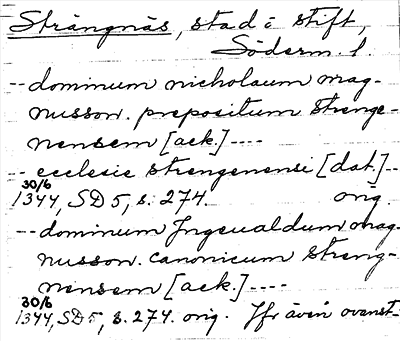 Strängnäs, stad i stift,
Söderm. l.
-- dominum nicholaum mag-
nusson. prepositum strenge-
nensem [ack.] ----
-- ecclesie strengenensi [dat.] --
30/6
1344, SD 5, s. 274. orig.
-- dominum Jngeualdum mag-
nusson. canonicum streng-
nensem [ack.] ----
30/6
1344, SD 5, s. 274. orig. Jfr även ovanst.